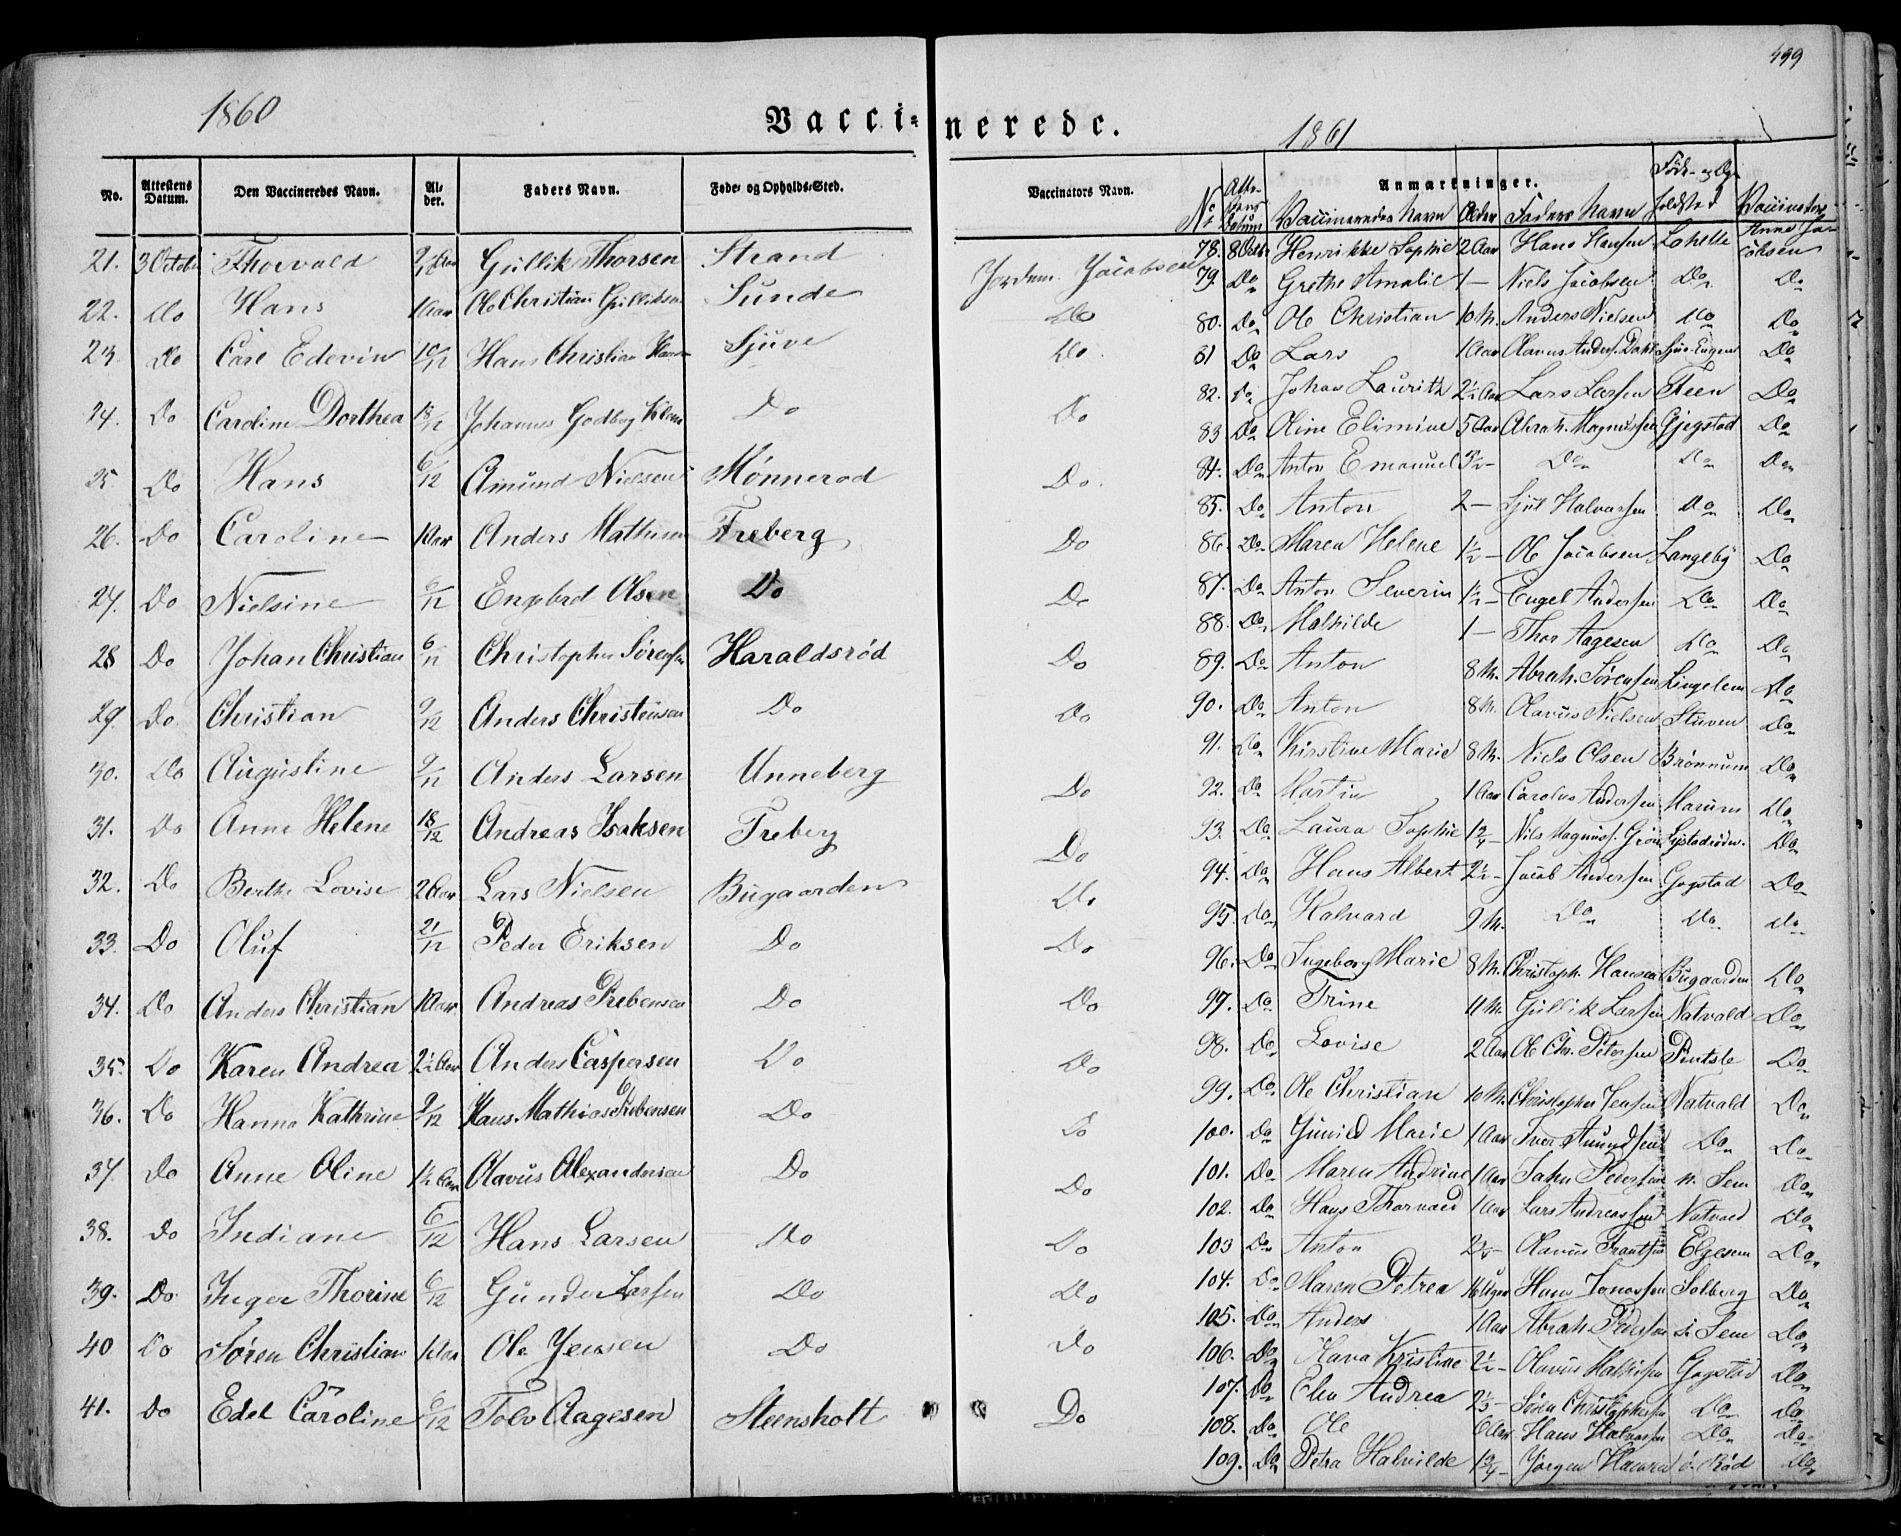 499
1860
Vaccinerede.
1861
No. Attestens Datum. Den Vaccineredes Navn. Alder. Faders Navn. Føde- og Opholds-Sted. Vaccinators Navn. Anmærkninger.
21. 3 Octob Thorvald 9/12 Aar Gullik Thorsen Strand Jordem. Jacobsen
22. Do Hans 1 Aar Ole Christian Gulliksen Sunde Do
23. Do Carl Edevin 10/12 Hans Christian Sjuve Do
24. Do Caroline Dorthea 18/12 Johannes Godbog Do Do
25. Do Hans 6/12 Amund Nielsen Mønnerød Do
26. Do Caroline 1 Aar Anders Mathisen Freberg Do
27. Do Nielsine 6/12 Engebrd Olsen Do Do
28 Do Johan Christian 6/12 Christopher Sørensen Haraldsrød Do
29. Do Christian 9/12 Anders Christensen Do Do
30. Do Augustine 9/12 Anders Larsen Unneberg Do
31. Do Anne Helene 18/12 Andreas Isaksen Freberg Do
32. Do Berthe Lovise 2 Aar Lars Nielsen Bugaarden Do
33. Do Oluf 21/12 Peder Eriksen Do Do
34. Do Anders Christian 1 Aar Andreas Prebensen Do Do
35. Do Karen Andrea 2½ Aar Anders Caspersen Do Do
36. Do Hanna Kathrine 9/12 Hans Mathias Prebensen Do Do
37. Do Anne Oline 1½ Aar Olavus Alexandersen Do Do
38. Do Indiane 6/12 Hans Larsen Do Do
39. Do Inger Thorine 6/12 Gunder Larsen Do Do
40 Do Søren Christian 1 Aar Ole Jensen Do Do
41. Do Edel Caroline 6/12 Tolv Aagesen Steensholt Do
No. Attestens Datum Vaccineredes Navn Alder Faders Navn Føde- og Opholdsted Vaccinators
78. 8 Octbr Henrikke Sophie 2 Aar Hans Hansen Lahelle Anne Jacobsen
79. Do Grethe Amalie 1 — Niels Jacobsen Do Do
80. Do Ole Christian 10 M. Anders Nielsen Do Do
81 Do Lars 1 Aar Olavus Anders. Dahl Sjue Do
82. Do Johan Lauritz 2½ Aar Lars Larsen Steen Do
83 Do Oline Elimine 5 Aar Abrah. Magnussen Gjegstad Do
84. Do Anton Emanuel Do Do Do
85. Do Anton 2 — Sjul Halvorsen Do Do
86. Do Maren Helene 1½ — Ole Jacobsen Langeby Do
87. Do Anton Severin 1½ — Engel Andersen Do Do
88. Do Mathilde 1 — Thor Aagesen Do Do
89. Do Anton 8 M. Abrah. Sørensen Lingelem Do
90. Do Anton 8 M. Olavus Nielsen Stuven Do
91. Do Kirstine Marie 8 M. Niels Olsen Brønnum Do
92. Do Martin 1 Aar Carolus Andersen Marum Do
93. Do Laura Sophie 1 2/4 — Nils Magnus. Do
94. Do Hans Albert 2½ — Jacob Andersen Gogstad Do
95. Do Halvard 9 M. Do Do Do
96. Do Ingeborg Marie 8 M. Christoph. Hansen Bugaarden Do
97. Do Trine 11 M. Gullik Larsen Natvald Do
98. Do Lovise 2 Aar Ole Chr. Petersen Pintsle Do
99. Do Ole Christian 10 M. Christopher Jensen Natvald Do
100. Do Gunild Marie 1 Aar Iver Amundsen Do Do
101. Do Maren Andrine 1 Aar Jahn Pedersen n. Sem Do
102. Do Hans Thorvald 1 Aar Lars Andreassen Natvald Do
103 Do Anton Olavus Frantsen Elgesem Do
104. Do Maren Petrea 16 Uger Hans Jonassen Solberg Do
105. Do Anders 1 Aar Abrah. Pedersen s. Sem Do
106. Do Hana Kristine 2½ — Olavus Mathisen Gogstad Do
107. Do Elen Andrea Søren Christophersen Do Do
108. Do Ole 6 Aar Hans Halvorsen Do Do
109. Do Petra Halvilde 1¾ — Jørgen ø. Rød Do